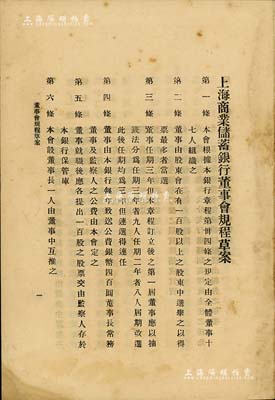 上海商業儲蓄銀行董事會規程草案
第一條 本會根據本銀行章程第卅四條之規定由全體董事十
七人組織之
第二條 董事由股東會在有一百股以上之股東中選舉之以得
票最多者當選
第三條 董事任期三年但本章程訂立後之第一屆董事應以抽
籤法分為任期三年者九人任期二年者八人屆期改選
此後任期均為三年但連選得連任
第四條 董事由本銀行每年致送公費銀幣四百圓董事長常務
董事及監察人之公費由本會定之
第五條 董事就職後應各提出一百股之股票交由監察人存於
本銀行保管庫
第六條 本會設董事長一人由董事中互推之
董事會規程草案
一